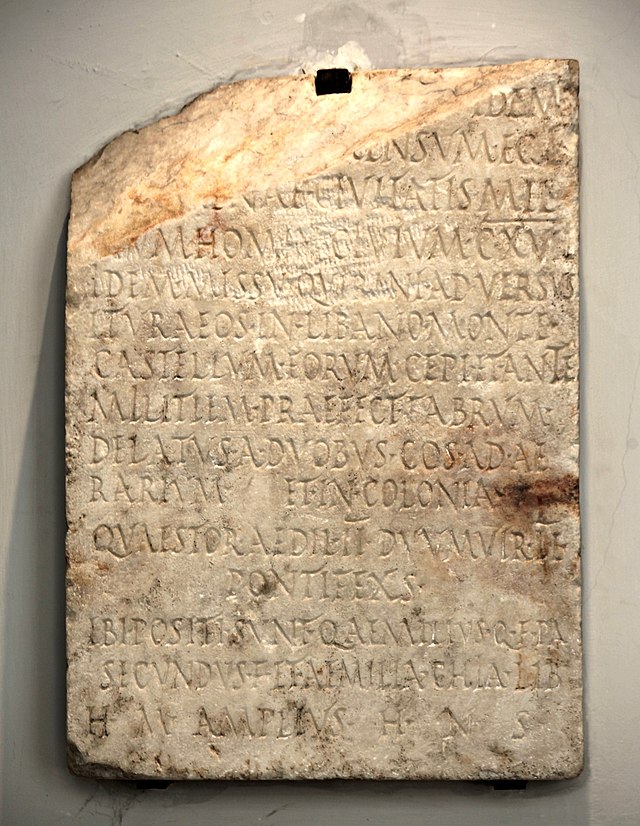 IDEM
CENSVM·EGI
CIVITATIS·MIL
HOMIN·CIVIVM·CXVII
IDEM·MISSV·QVIRINI·ADVERSVS
ITVRAEOS·IN·LIBANO·MONTE·
CASTELLVM·EORVM·CEPI·ET·ANTE
MILITIEM·PRAEFECT·FABRVM·
DELATVS·A·DVOBVS·COS·AD·AE
RARIVM ET·IN·COLONIA·
QVAESTOR·AEDIL·II·DVVMVIR·II·
PONTIFEXS·
IBI·POSITI·SVNT·Q·AEMILIVS·Q·F·PAL
SECVNDVS·F·ET·AEMILIA·CHIA·LIB
H M AMPLIVS H N S